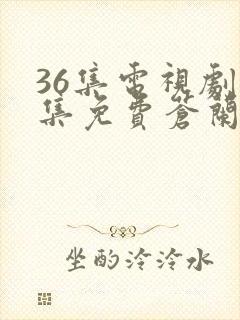 36集電視劇
集免費蒼蘭
坐酌泠泠水